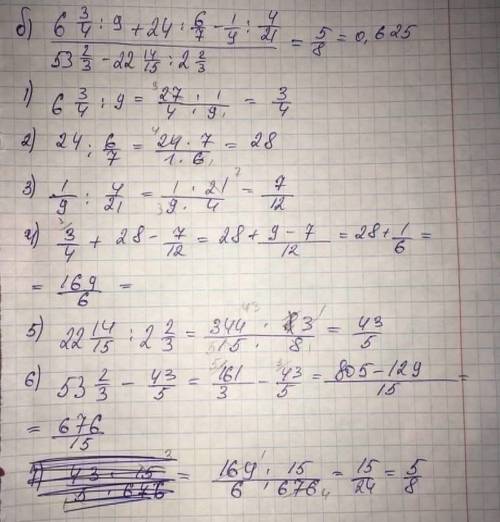 б) (6 3/4 : 9 + 24 : 6/7 - 1/9 : 4/21) / (53 2/3 - 22 14/15 : 2 2/3) = 5/8 = 0,625
1) 6 3/4 : 9 = (27 · 1)/(4 · 9) = 3/4
2) 24 : 6/7 = (24 · 7)/(1 · 6) = 28
3) 1/9 : 4/21 = (1 · 21)/(9 · 4) = 7/12
4) 3/4 + 28 - 7/12 = 28 + (9 - 7)/12 = 28 + 1/6 =
= 169/6 =
5) 22 14/15 : 2 2/3 = (344 · 3)/(15 · 8) = 43/5
6) 53 2/3 - 43/5 = 161/3 - 43/5 = (805 - 129)/15 =
= 676/15
7) (43 · 15)/(5 · 676) = (169 · 15)/(6 · 676) = 15/24 = 5/8